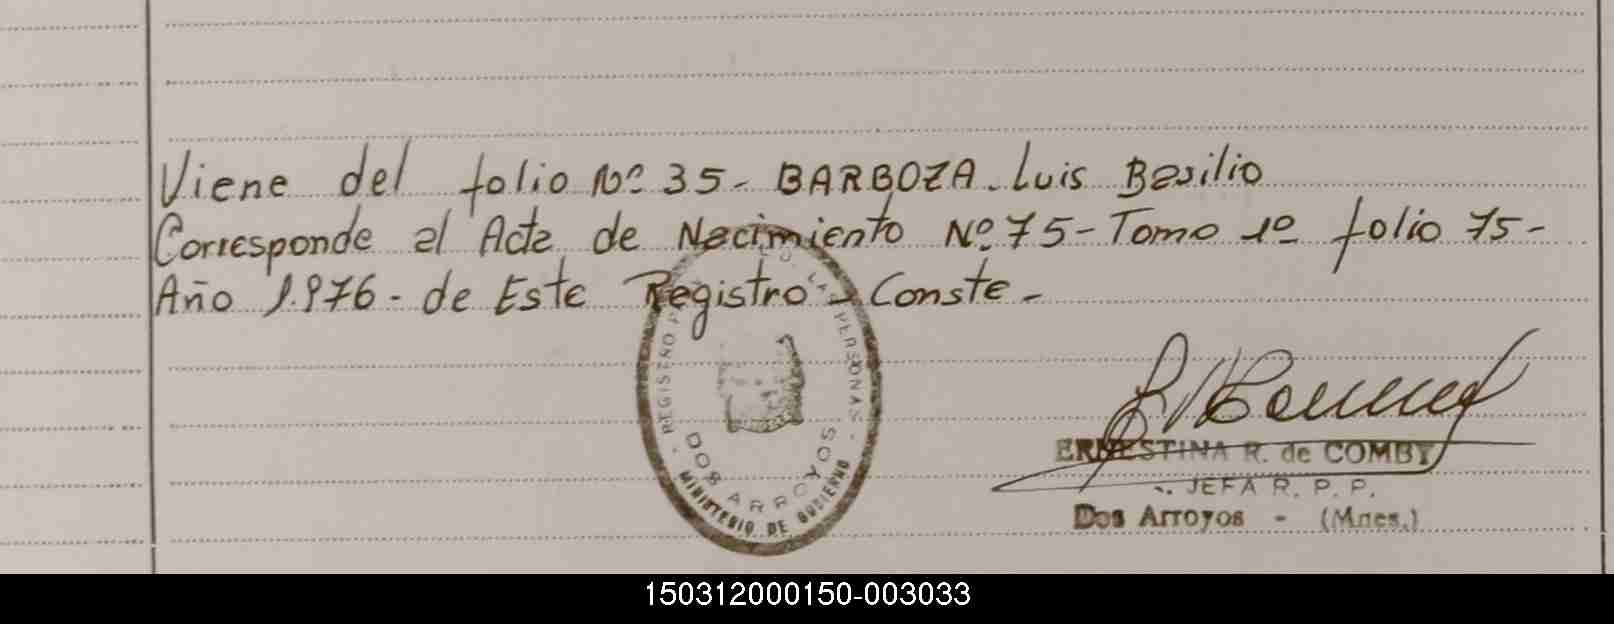 Viene del folio Nº 35- BARBOZA. Luis Basilio
Corresponde al Acta de Nacimiento Nº 75- Tomo 1º folio 75-
Año 1.976- de Este Registro - Conste-
REGISTRO PERSONAS
DOS ARROYOS
MINISTERIO DE GOBIERNO
ERNESTINA R. de COMBY
JEFA R. P. P.
Dos Arroyos - (Mnes.)
150312000150-003033